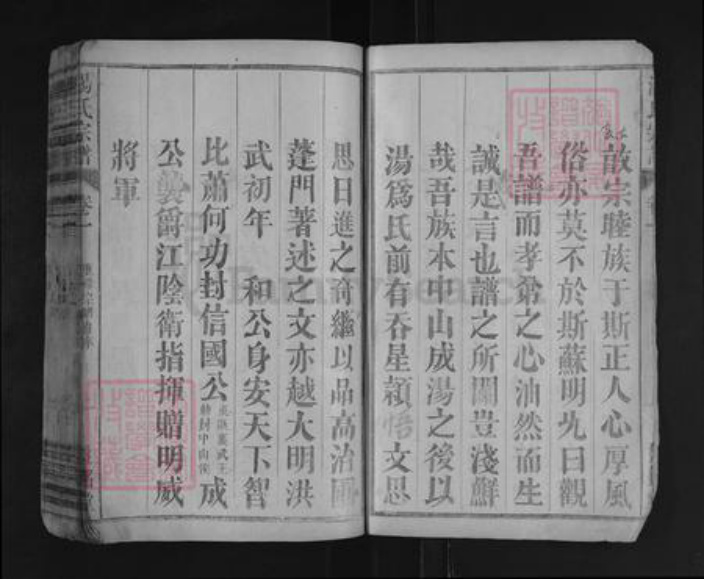 故宗睦族于斯正人心厚風
俗亦莫不於斯蘇明允曰觀
吾譜而孝弟之心油然而生
誠是言也譜之所關豈淺鮮
哉吾族本中山成湯之後以
湯爲氏前有吞星穎悟文思
思日進之奇繼以品高治國
蓬門著述之文亦越大明洪
武初年 和公身安天下智
比蕭何功封信國公
公襲爵江陰衛指揮贈明威
將軍
湯氏宗譜